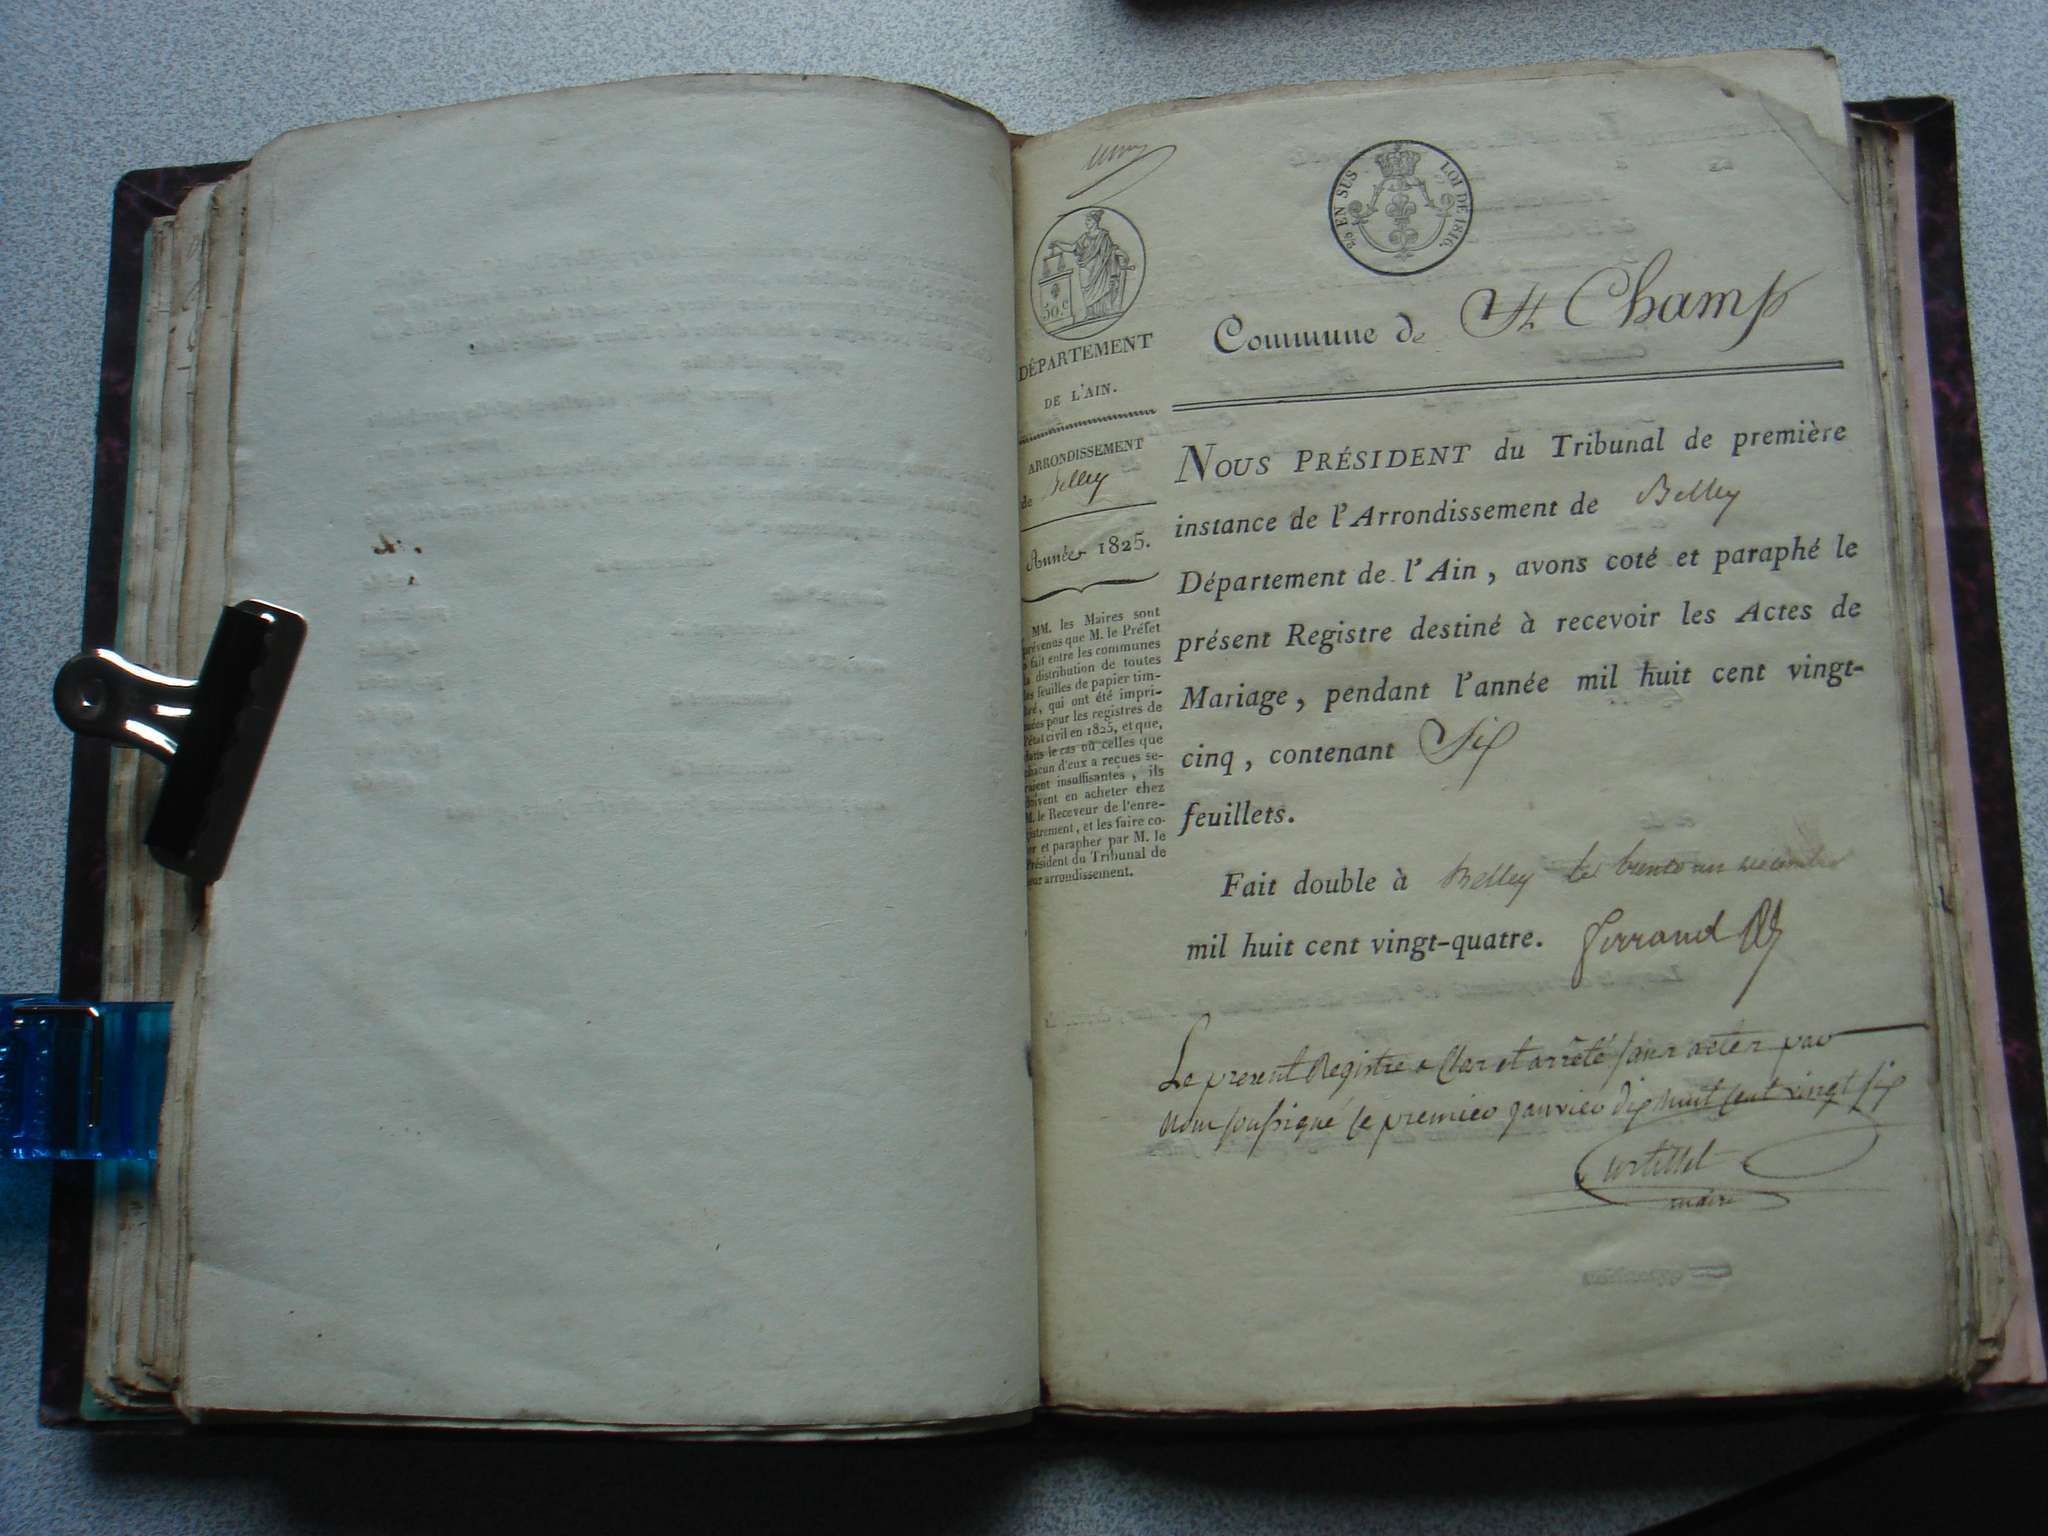 EN SUS
LOI DE 1816.
50.c
DÉPARTEMENT
DE L'AIN.
ARRONDISSEMENT
de Belley
Année 1825.
MM. les Maires sont
prévenus que M. le Préfet
a fait entre les communes
la distribution de toutes
les feuilles de papier tim-
bré, qui ont été impri-
mées pour les registres de
l'état civil en 1825, et que,
dans le cas où celles que
chacun d'eux a reçues se-
raient insuffisantes, ils
doivent en acheter chez
M. le Receveur de l'enre-
gistrement, et les faire co-
ter et parapher par M. le
Président du Tribunal de
leur arrondissement.
Commune de St Champ
NOUS PRÉSIDENT du Tribunal de première
instance de l'Arrondissement de Belley
Département de l'Ain, avons coté et paraphé le
présent Registre destiné à recevoir les Actes de
Mariage, pendant l'année mil huit cent vingt-
cinq, contenant Six
feuillets.
Fait double à Belley le trente un decembre
mil huit cent vingt-quatre.
Le present Registre a Clos et arrêté sans actes par
Nous soussigné le premier janvier dix huit cent vingt six
maire